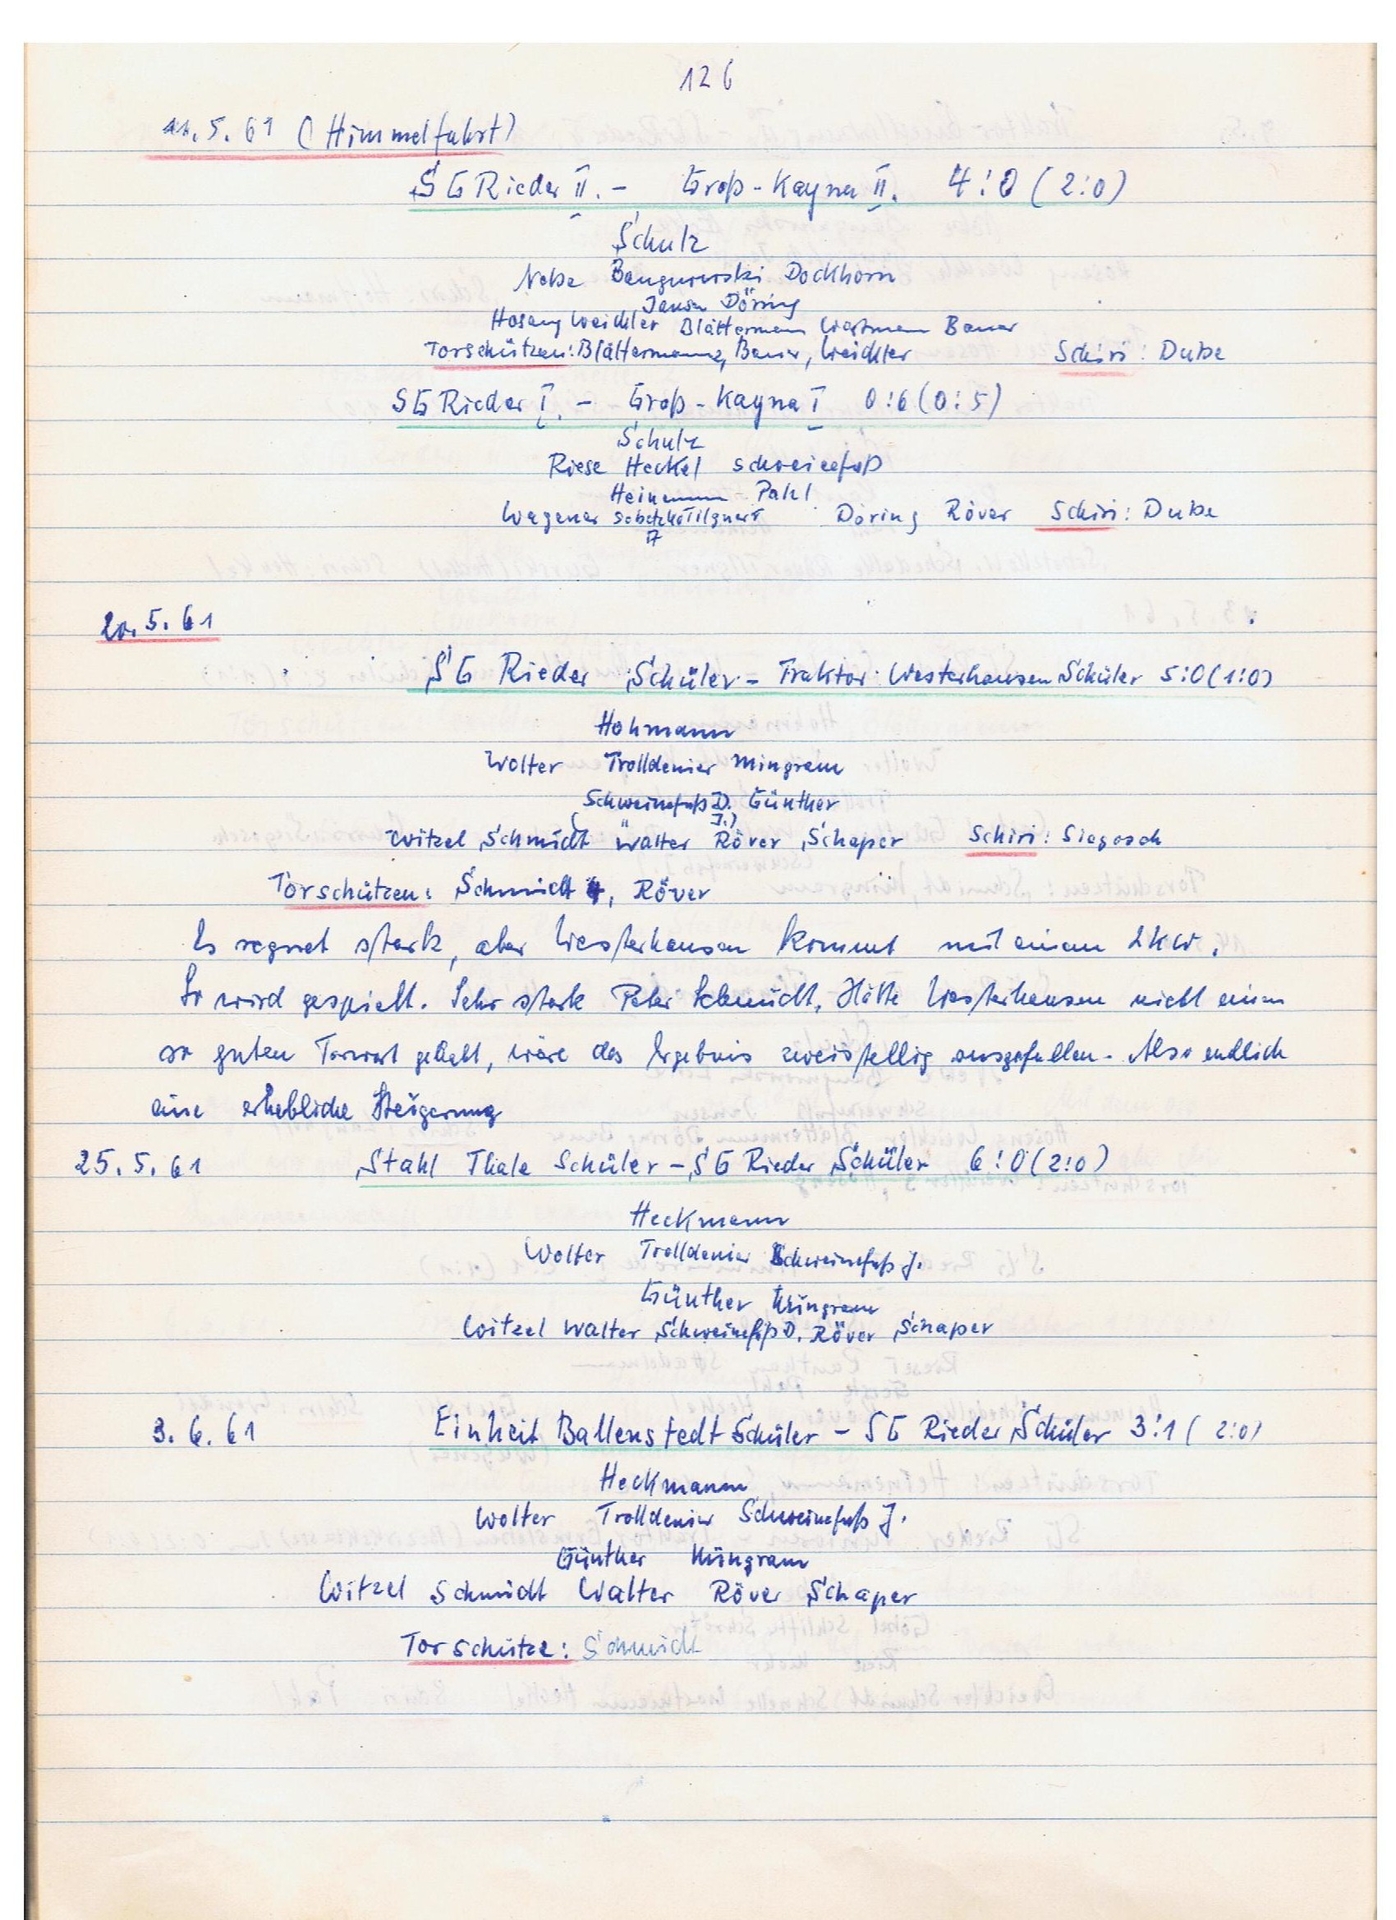 126
11. 5. 61 (Himmelfahrt)
SG Rieder II. - Groß-Kayna II. 4:0 (2:0)
Schulz
Nebe Bangurowski Dockhorn
Jansen Döring
Hosang Weichler Blättermann Wortmann Bauer
Torschützen: Blättermann, Bauer, Weichler Schiri: Dube
SG Rieder I. - Groß-Kayna I 0:6 (0:5)
Schulz
Riese Heckel Schweinefuß
Heinemann Pahl
Wagener Tilgner Döring Röver Schiri: Dube
20. 5. 61
SG Rieder Schüler - Traktor Westerhausen Schüler 5:0 (1:0)
Hohmann
Wolter Trolldenier Mingram
Schweinefuß D. Günther
(J.)
Witzel Schmidt Walter Röver Schaper Schiri: Siegosch
Torschützen: Schmidt 4, Röver
Es regnet stark, aber Westerhausen kommt mit einem LKW.
So wird gespielt. Sehr stark Peter Schmidt. Hätte Westerhausen nicht einen
so guten Torwart gehabt, wäre das Ergebnis zweistellig ausgefallen. Also endlich
eine erhebliche Steigerung
25. 5. 61 Stahl Thale Schüler - SG Rieder Schüler 6:0 (2:0)
Heckmann
Wolter Trolldenier Schweinefuß J.
Günther Mingram
Witzel Walter Schweinefuß D. Röver Schaper
3. 6. 61 Einheit Ballenstedt Schüler - SG Rieder Schüler 3:1 (2:0)
Heckmann
Wolter Trolldenier Schweinefuß J.
Günther Mingram
Witzel Schmidt Walter Röver Schaper
Torschütze: Schmidt